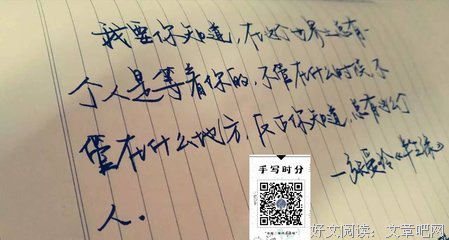 我要你知道,在这个世界上总有一
个人是等着你的,不管在什么时候,不
管在什么地方,反正你知道,总有这么个
人.
—张爱玲《半生缘》
手写时分
好文阅读:文章吧网